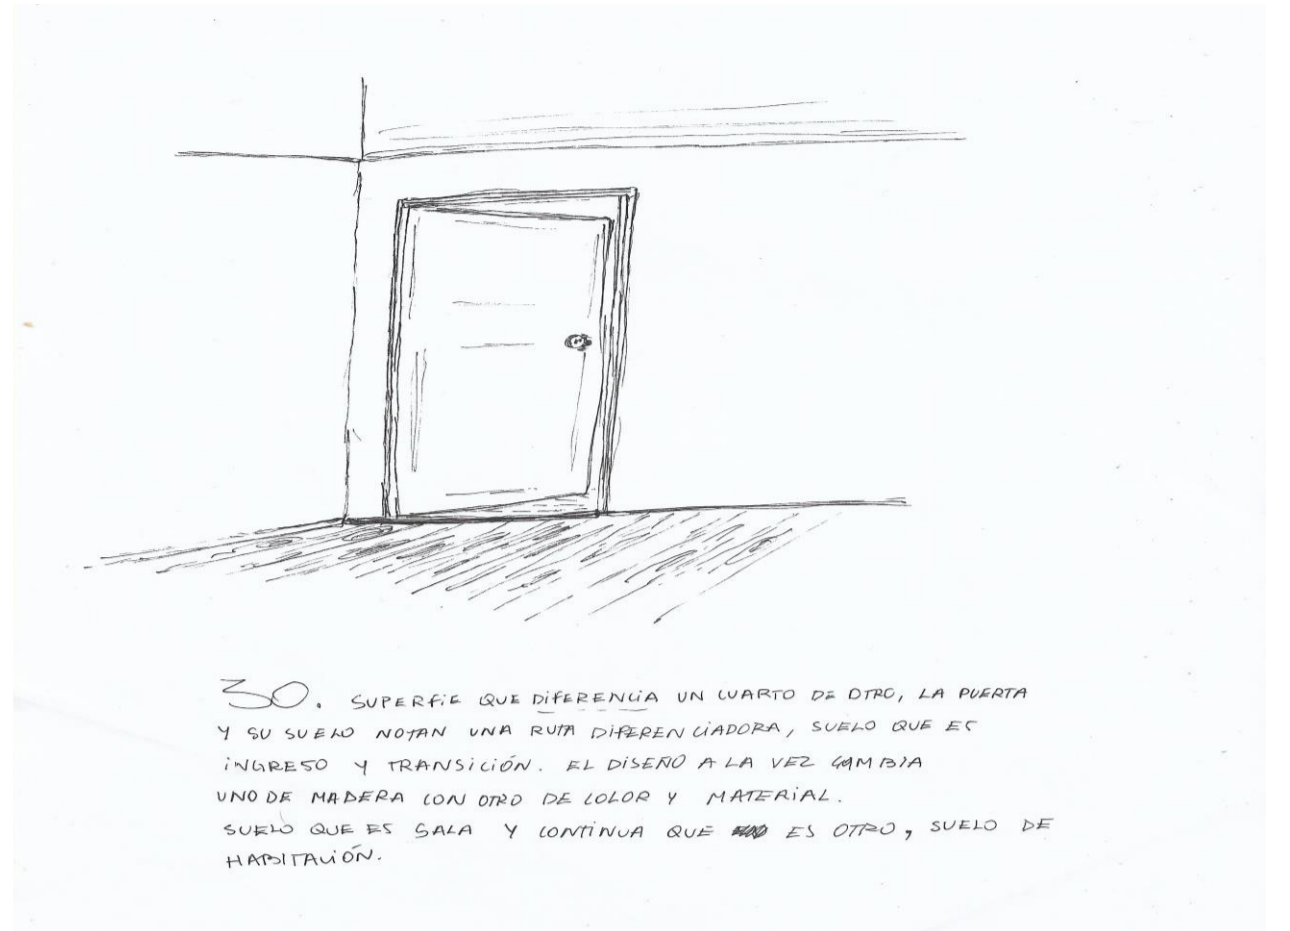 30. SUPERFIE QUE DIFERENCIA UN CUARTO DE OTRO, LA PUERTA
Y SU SUELO NOTAN UNA RUTA DIFERENCIADORA, SUELO QUE ES
INGRESO Y TRANSICIÓN. EL DISEÑO A LA VEZ CAMBIA
UNO DE MADERA CON OTRO DE COLOR Y MATERIAL.
SUELO QUE ES SALA Y CONTINUA QUE ES OTRO, SUELO DE
HABITACIÓN.